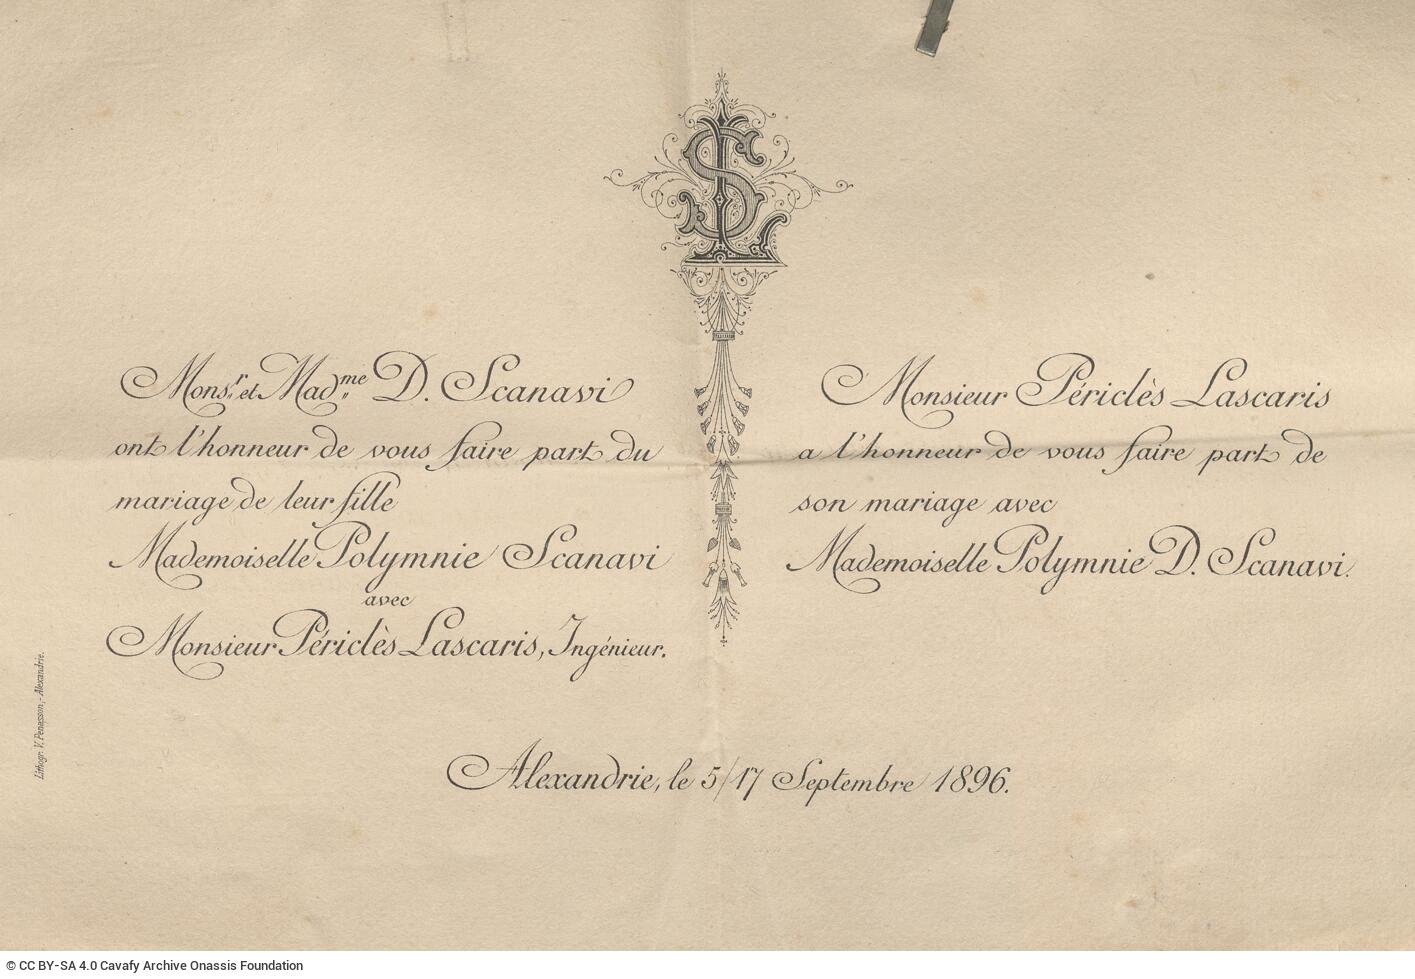 SL
Mons.r et Mad.me D. Scanavi
ont l'honneur de vous faire part du
mariage de leur fille
Mademoiselle Polymnie Scanavi
avec
Monsieur Périclès Lascaris, Ingénieur.
Monsieur Périclès Lascaris
a l'honneur de vous faire part de
son mariage avec
Mademoiselle Polymnie D. Scanavi.
Alexandrie, le 5/17 Septembre 1896.
Lithogr. V. Penasson, - Alexandrie.
© CC BY-SA 4.0 Cavafy Archive Onassis Foundation